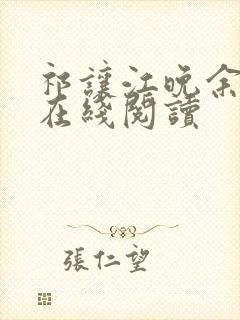 祁讓江晚余
在綫閱讀
張仁望